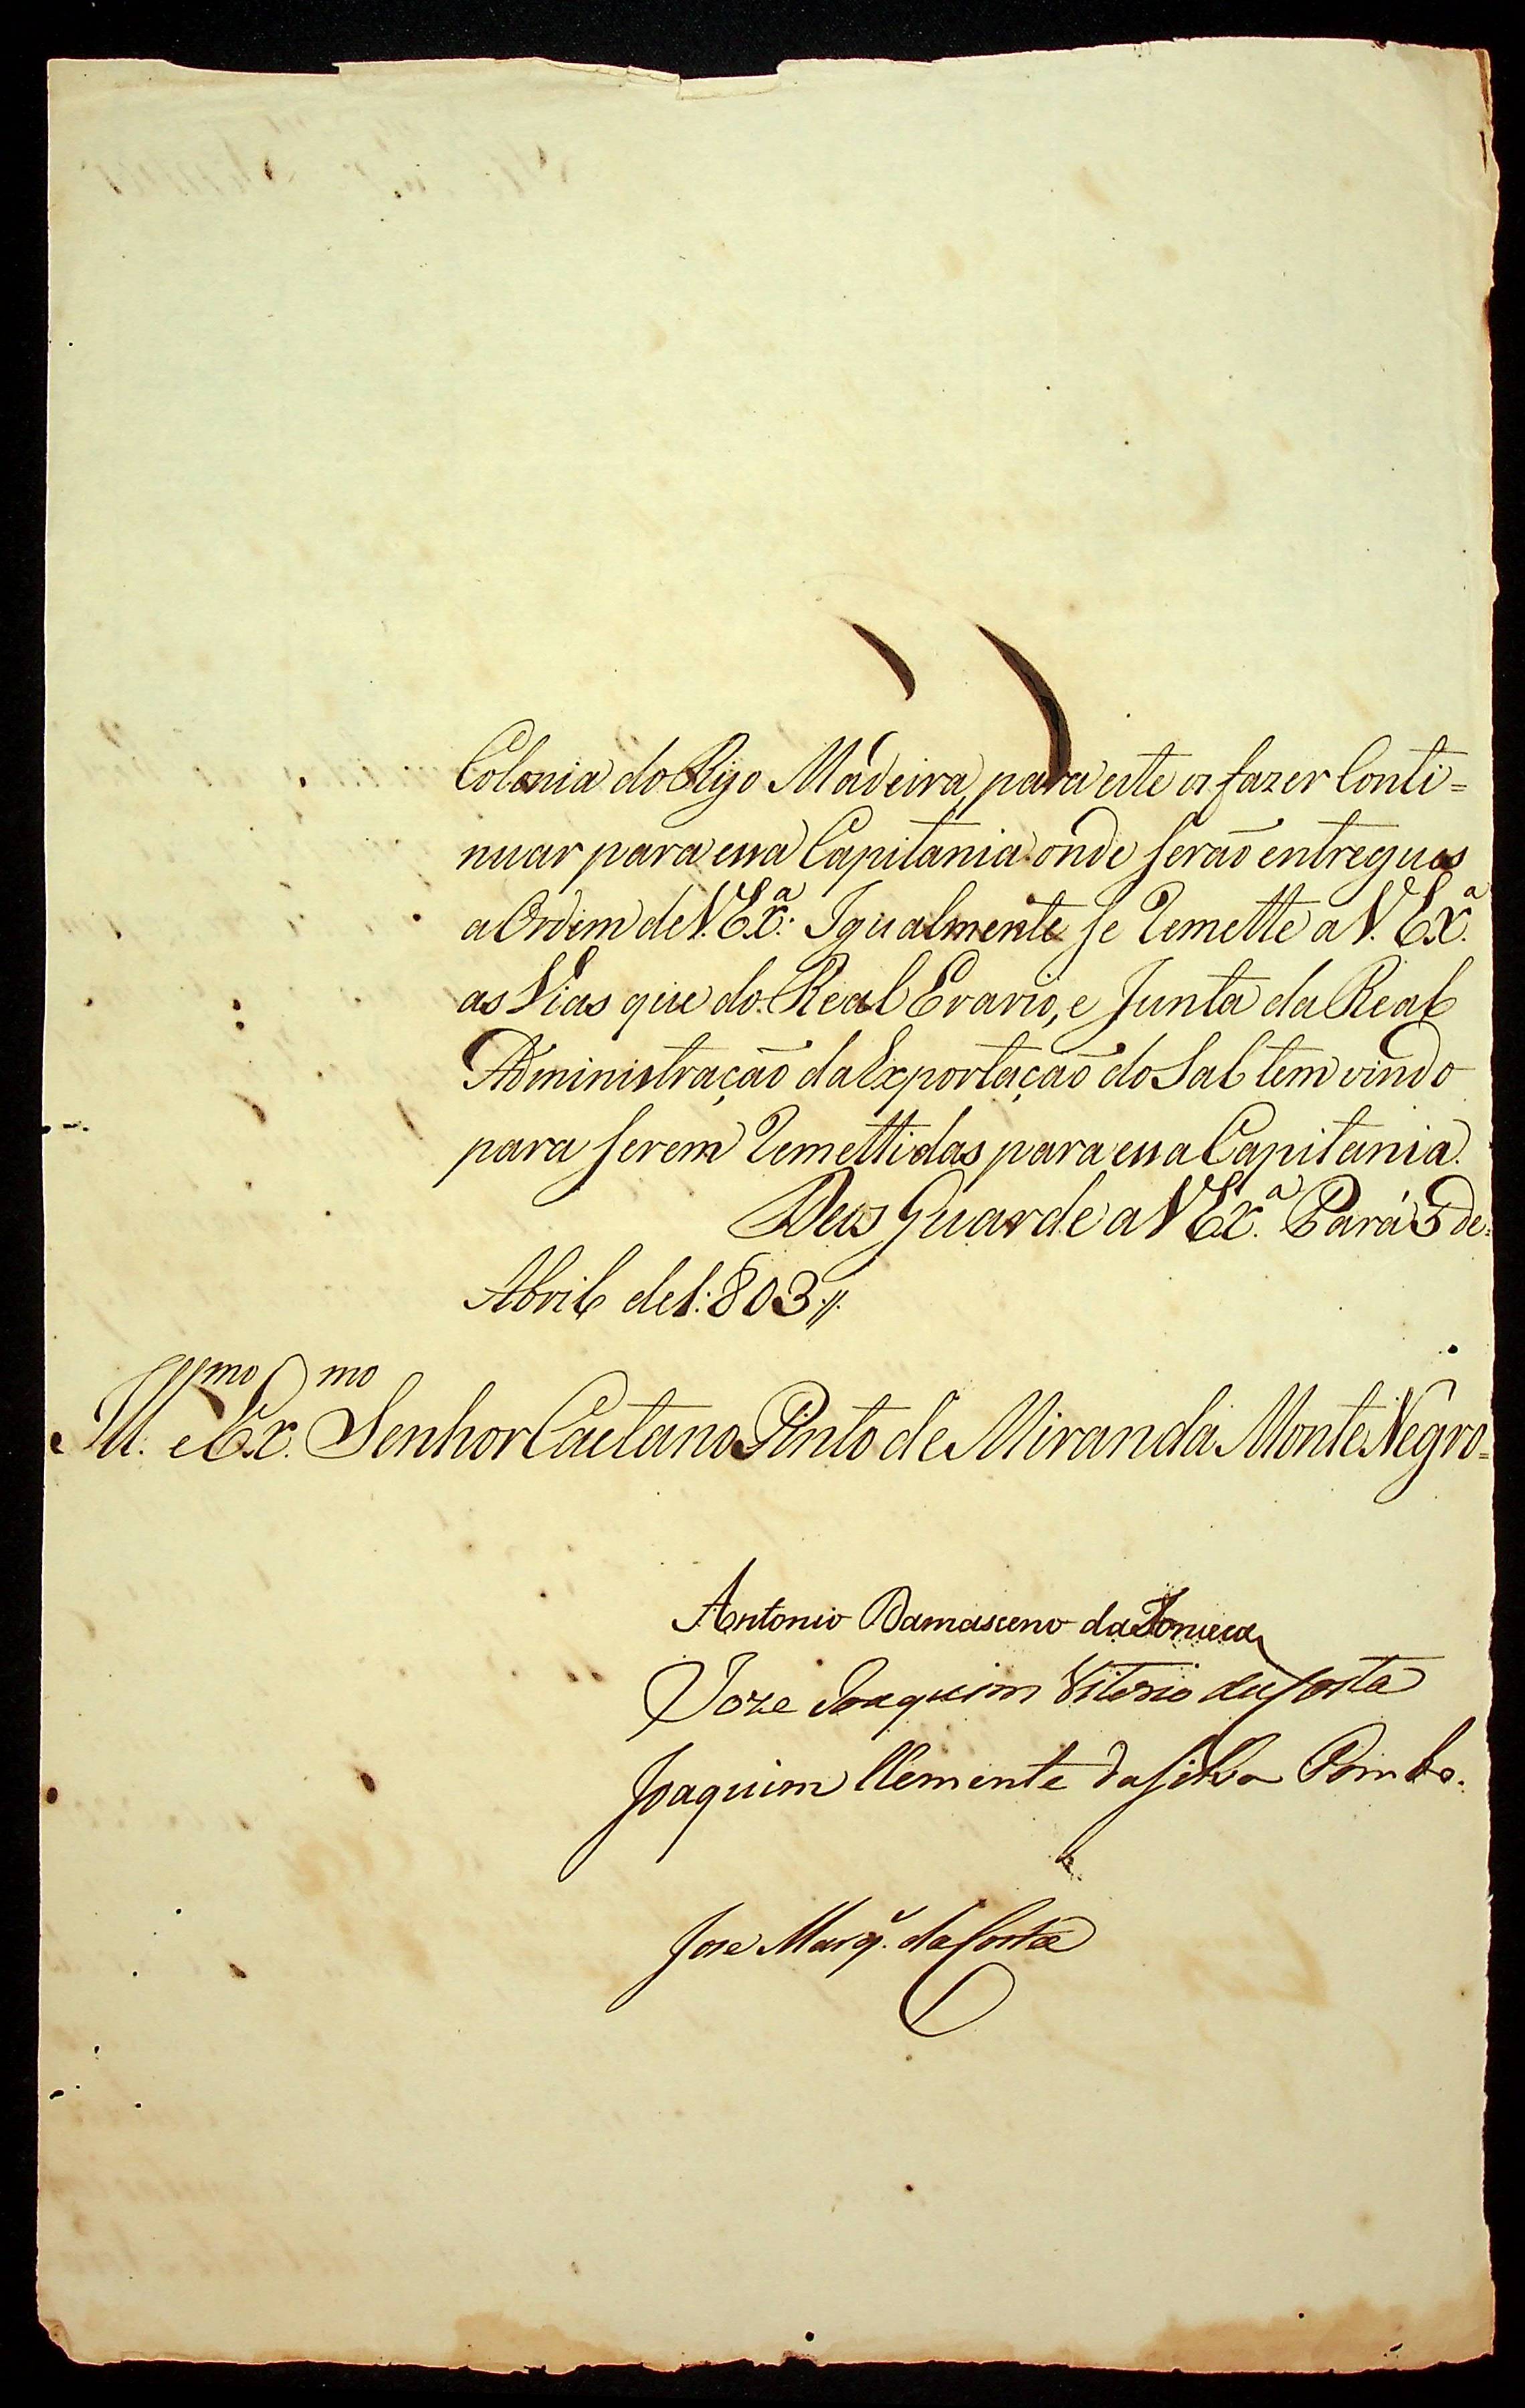 Colonia do Ryo Madeira, para este os fazer Conti=
nuar para essa Capitania onde serão entregues
a Ordem de V. Ex.ª: Igualmente se remette a V. Ex.ª
as Vias que do Real Erario, e Junta da Real
Administração da Exportação do Sal tem vindo
para serem remettidas para essa Capitania.
Deos Guarde a V Ex.ª Pará 5 de
Abril de 1:803 //.
Ill.mo e Ex.mo Senhor Caetano Pinto de Miranda Monte Negro=
Antonio Damasceno da Fonseca
Joze Joaquim Vitorio da Costa
Joaquim Clemente da Silva Pombo.
Joze Marq. da Costa